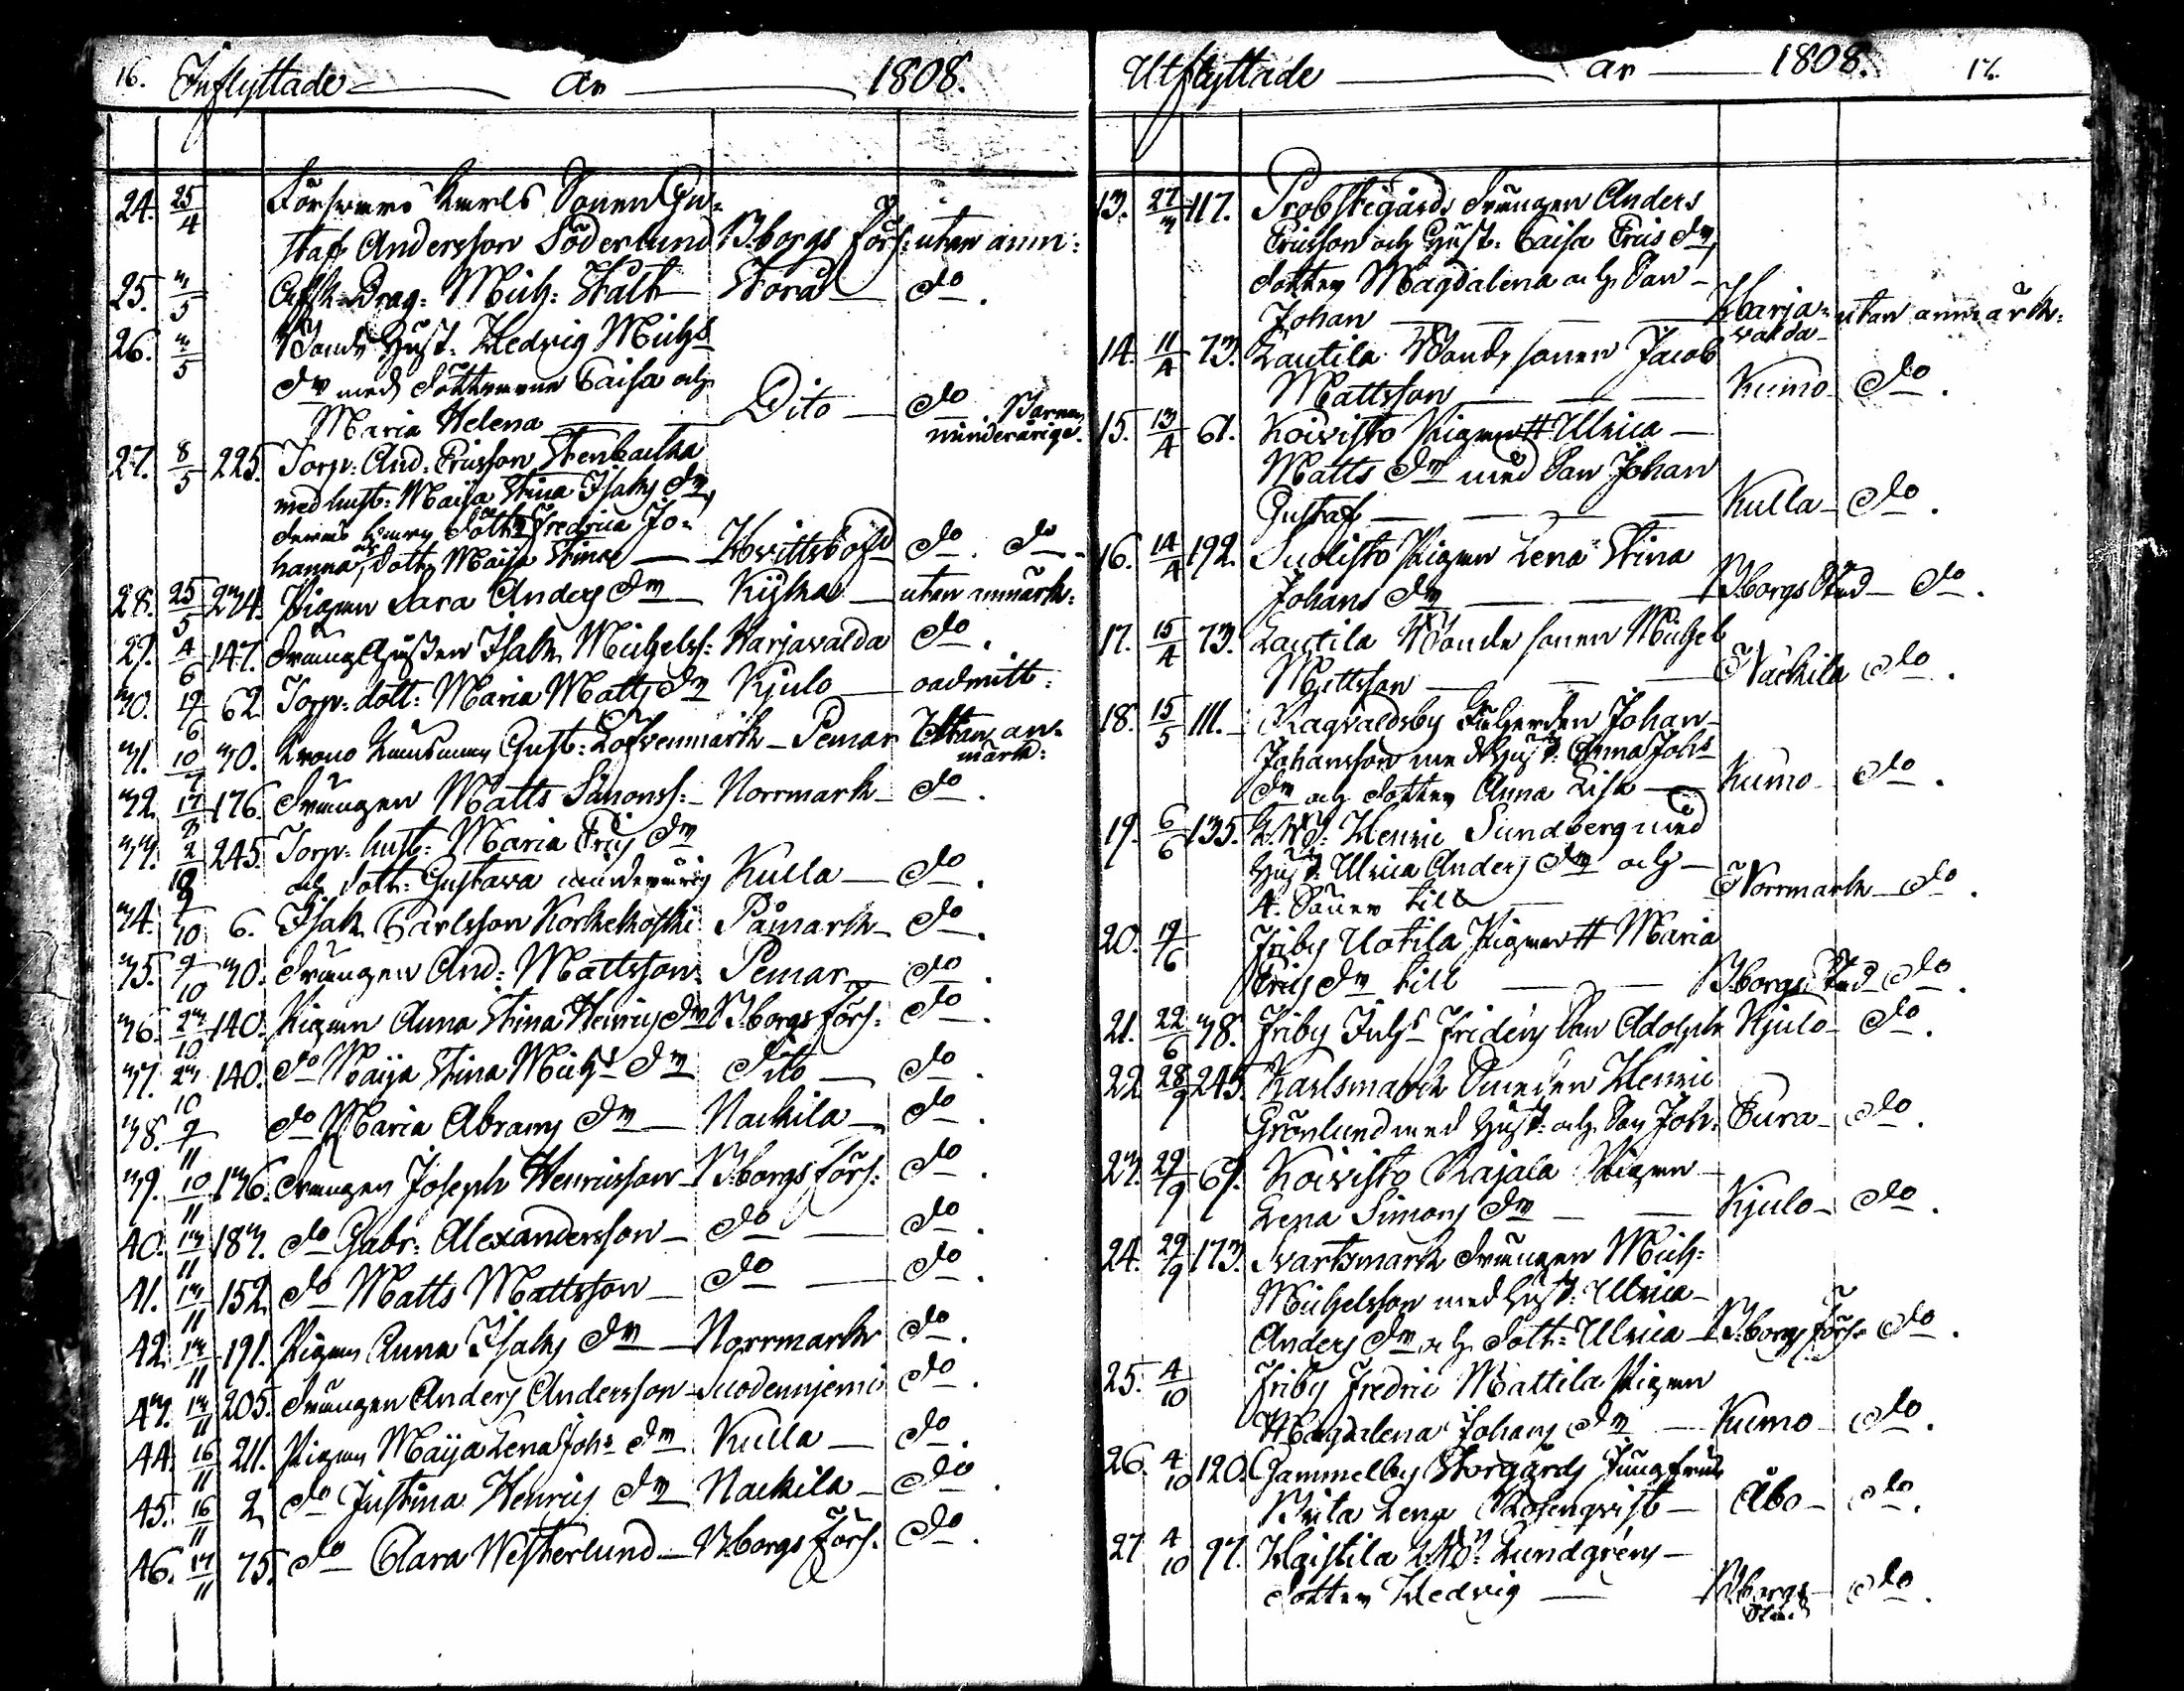 16. Inflyttade — år — 1808.
24. 25/4 Försvars Karls Sonen Gu-
staf Andersson Söderlund B:borgs förs: utan anm:
25. 3/5 Afsk. Drag: Mich: Stålt Storå — do.
26. 3/5 Bonds Hust: Hedvig Michs
dr med döttrarne Caisa och
Maria Helena — Dito — do. Barnen
minderårige.
27. 8/5 225. Torp: And: Ericsson Stenbacka
med hust: Maija Stina Isaks dr,
deras barn Dottr Fredrica Jo-
hanna, och Dottr Maija Stina — Hvittisbofd do. do.
28. 25/5 234. Pigan Sara Anders dr — Kjulo — utan anmärk:
29. 4/6 147. Dräng Gossen Isak Michelss: Harjavalda do.
30. 19/6 62. Torp: dott: Maria Matts dr Kjulo — oadmitt:
31. 10/7 30. Krono Länsman Gust: Löfvenmark — Pemar Utan an-
märk:
32. 17/8 176. Drängen Matts Simonss: — Norrmark — do.
33. 2/10 245. Torp: hust: Maria Erics dr
och Dottr: Gustava minderårig Kulla — do.
34. 9/10 6. Isak Carlsson Korkekoski Påmark — do.
35. 9/10 30. Drängen And: Mattsson Pemar — do.
36. 23/10 140. Pigan Anna Stina Henrics dr B:borgs förs: do.
37. 23/10 140. do Maija Stina Michs dr Dito — do.
38. 9/11 do Maria Abrams dr — Nackila — do.
39. 10/11 136. Drängen Joseph Henricsson — B:borgs förs: do.
40. 13/11 187. do Gabr: Alexandersson — do — do.
41. 13/11 152. do Matts Mattsson — do — do.
42. 13/11 191. Pigan Anna Isaks dr — Norrmark do.
43. 13/11 205. Drängen Anders Andersson — Suodenniemi do.
44. 16/11 211. Pigan Maija Lena Johs dr Kulla — do.
45. 16/11 2. do Justina Henrics dr Nackila — do.
46. 17/11 75. do Clara Westerlund — B:borgs förs: do.
Utflyttade — år — 1808. 17.
13. 27/3 117. Probstegårds Drängen Anders
Ericsson och Hust: Caisa Erics dr,
dotter Magdalena och Son —
Johan — Harja- utan anmärk:
valda
14. 11/4 73. Lautila Bonde sonen Jacob
Mattsson — Kumo — do.
15. 13/4 61. Koivisto Pigan # Ulrica —
Matts dr med Son Johan
Gustaf — Kulla — do.
16. 14/4 192. Suolisto Pigan Lena Stina
Johans dr — B:borgs Stad — do.
17. 15/4 73. Lautila Bonde sonen Michel
Mattsson — Nackila do.
18. 15/5 111. Ragvaldsby Johan
Johansson med Hust: Anna Johs
dr och dotter Anna Lisa — Kumo — do.
19. 6/6 135. Henric Sundberg med
Hust: Ulrica Anders dr och —
4. Söner till — Norrmark — do.
20. 19/6 Friby Uotila Pigan # Maria
Erics dr till — B:borgs Stad do.
21. 22/6 38. Friby Fridens Son Adolph Kjulo — do.
22. 28/9 245. Karlsmark Smeden Henric
Grönlund med Hust: och Son Joh: Eura — do.
23. 29/9 61. Koivisto Rajala Pigan —
Lena Simons dr — Kjulo — do.
24. 29/9 173. Svartsmark Drängen Mich:
Michelsson med Hust: Ulrica —
Anders dr och Dott: Ulrica — B:borgs förs: do.
25. 4/10 Friby Fredric Mattila Pigan
Magdalena Johans dr — Kumo — do.
26. 4/10 120. Gammelby Storgårds Jungfrun
Brita Lena Rosenqvist — Åbo — do.
27. 4/10 97. Haistila Lundgrens —
dotter Hedvig — B:borgs — do.
Stad